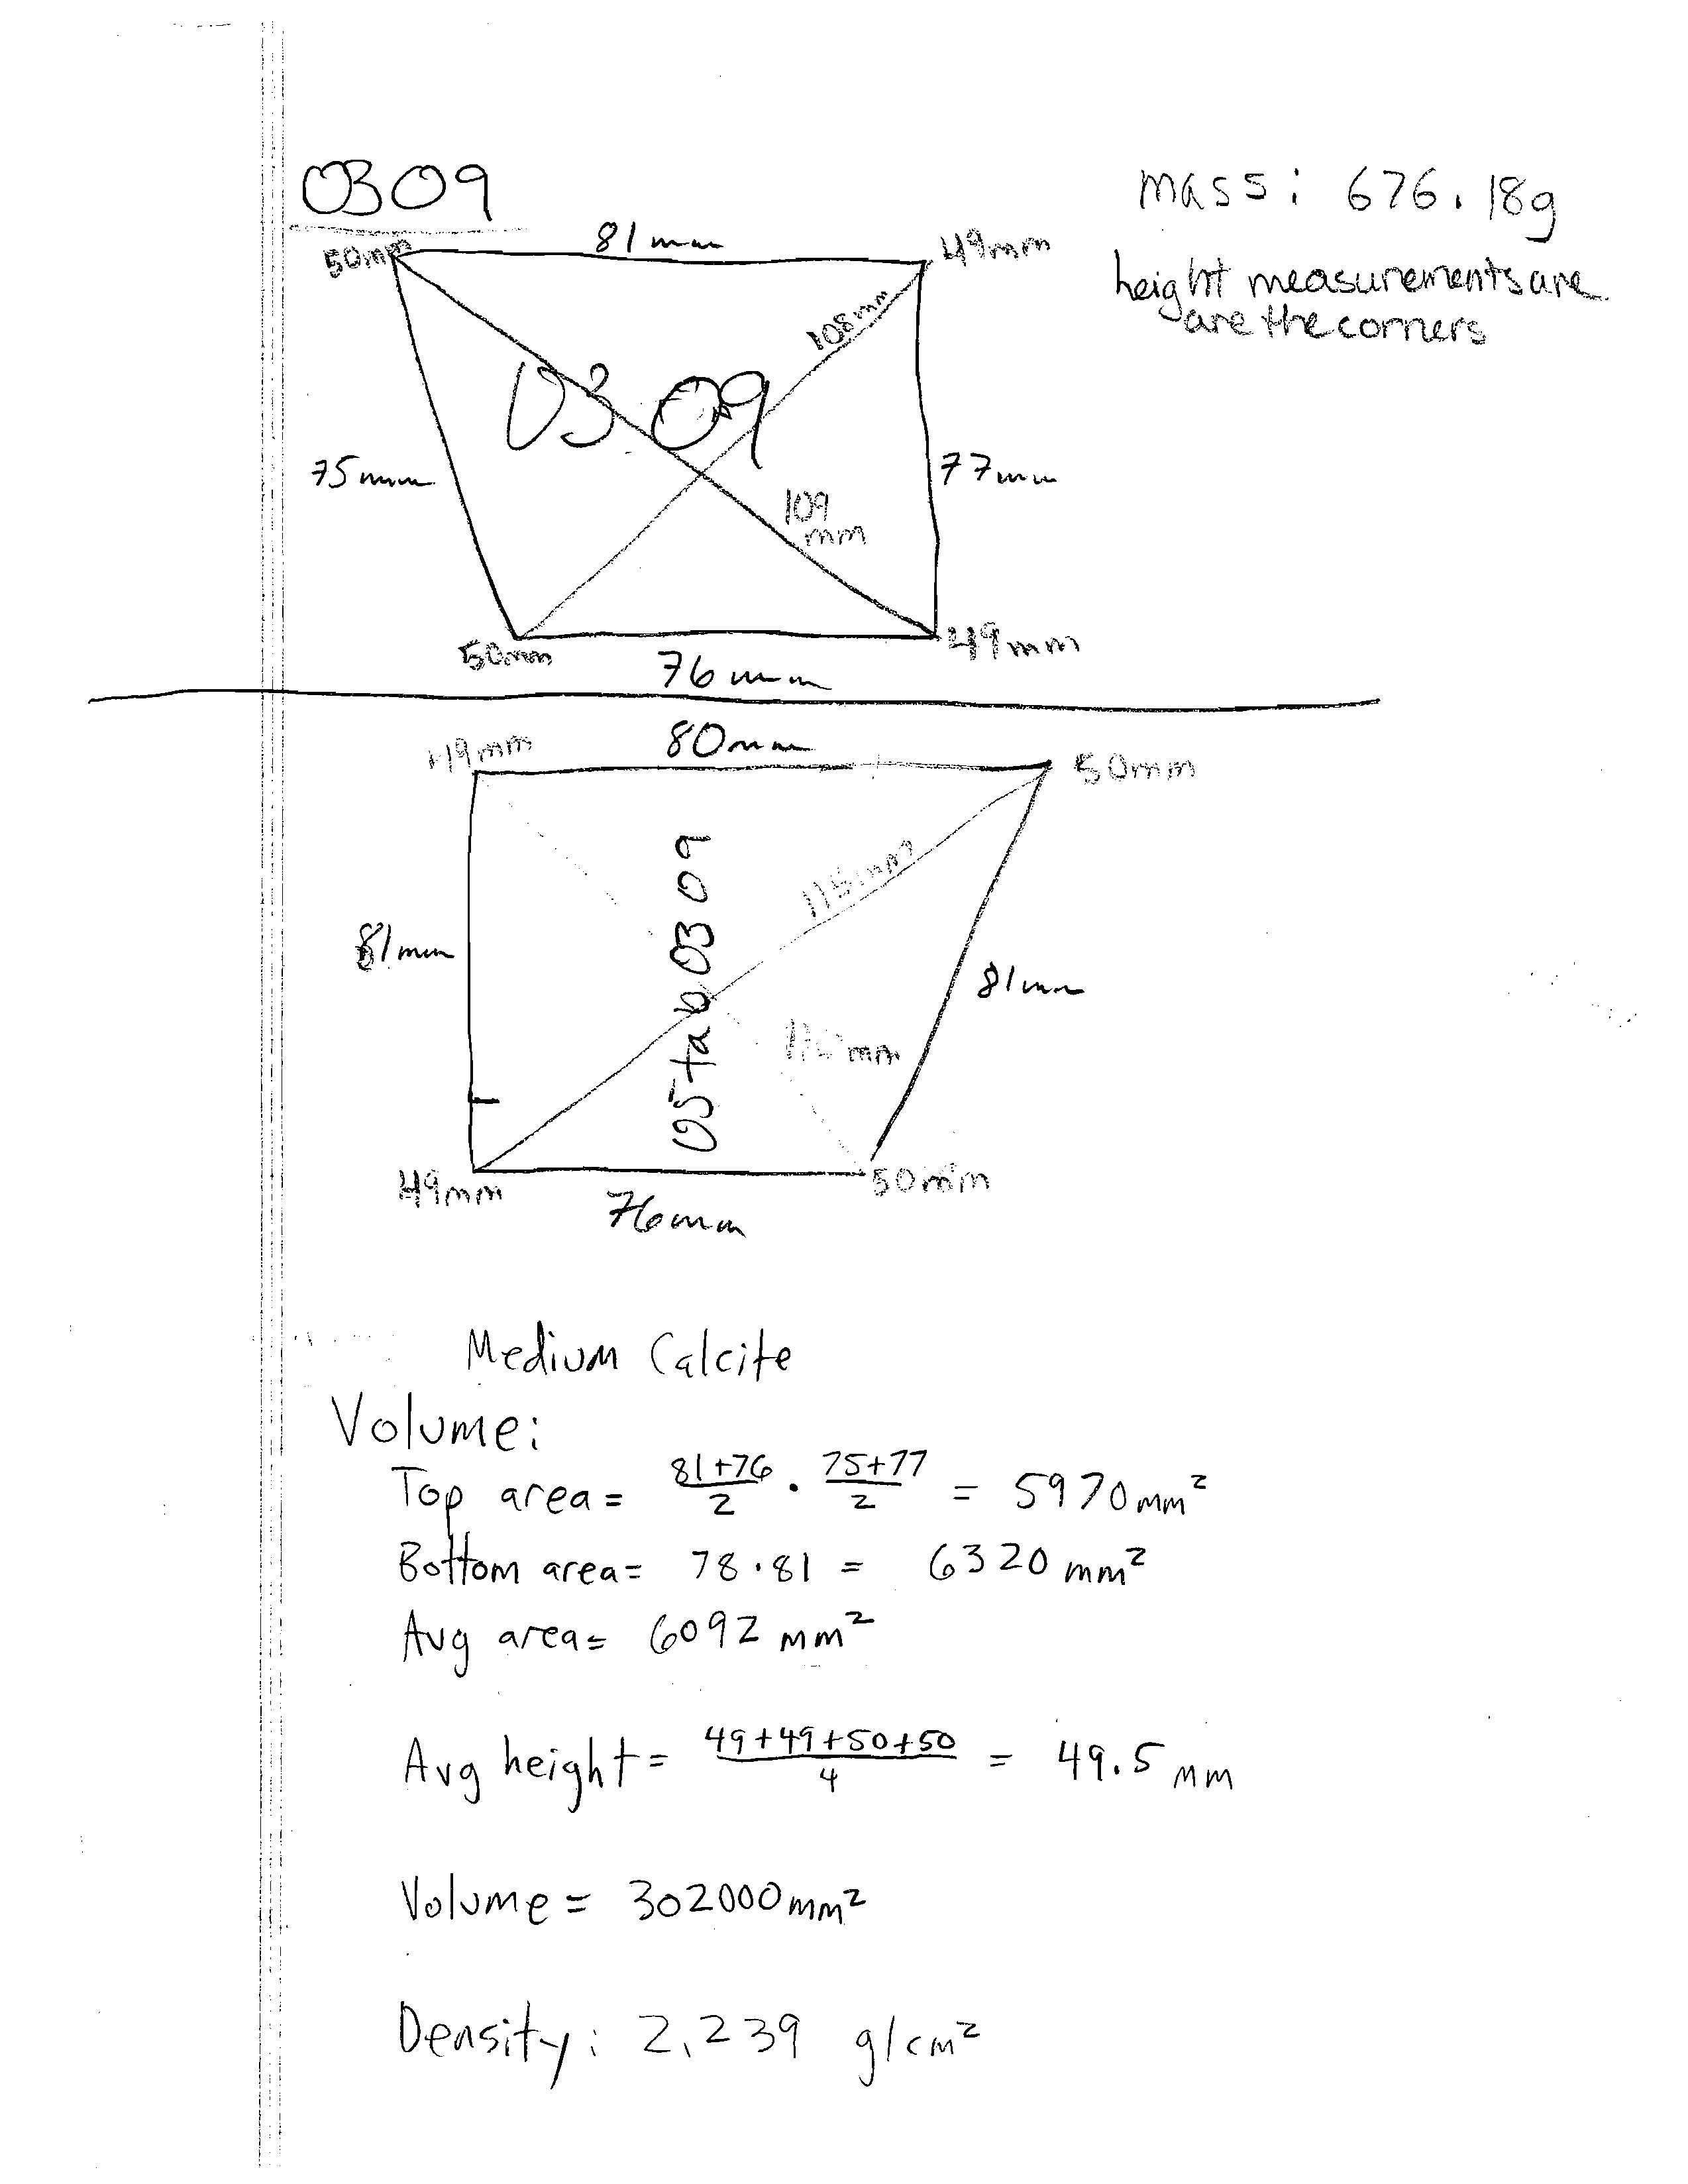 0309
mass: 676.18g
height measurements are
are the corners
50mm
81mm
49mm
108mm
0309
75mm
77mm
109
mm
50mm
49mm
76mm
49mm
80mm
50mm
115mm
81mm
05tab0309
81mm
mm
49mm
50mm
76mm
Medium Calcite
Volume:
Top area = 81+76/2 · 75+77/2 = 5970mm²
Bottom area = 78·81 = 6320 mm²
Avg area = 6092 mm²
Avg height = 49+49+50+50/4 = 49.5 mm
Volume = 302000mm²
Density: 2.239 g/cm²